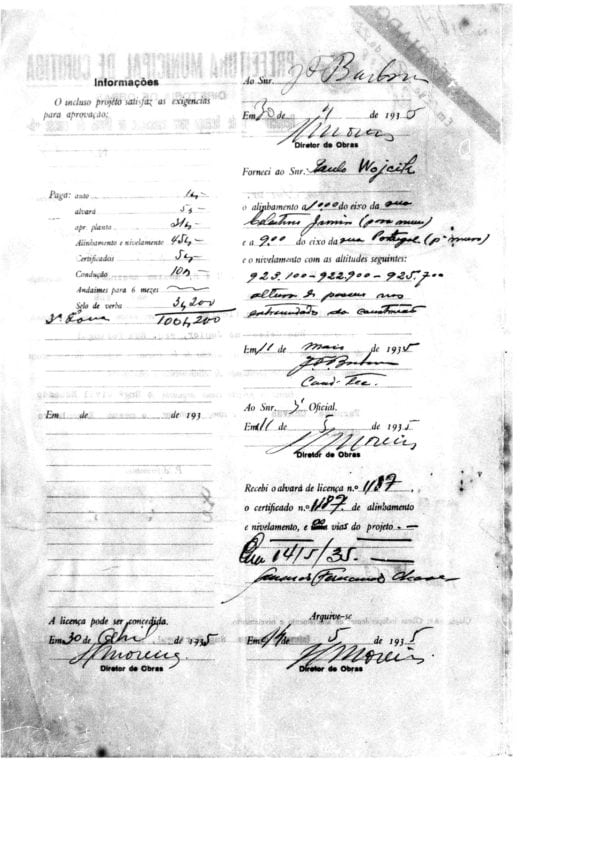 Informações
O incluso projéto satisfaz as exigencias
para aprovação:
Paga: auto 1$-
alvará 5$-
apr. planta
Alinhamento e nivelamento 45$-
Certificados 5$-
Condução 10$-
Andaimes para 6 mezes
Selo de verba 3$200
100$200
Em de de 193
A licença pode ser concedida.
Em 30 de Abril de 1935
H Moreira
Diretor de Obras
Ao Snr. J F Barbosa
Em 30 de 4 de 1935
H Moreira
Diretor de Obras
Forneci ao Snr. Paulo Wojcik
o alinhamento a do eixo da rua
Celestino Junior (para muro)
e a 9.00 do eixo da rua Portugal (p. muro)
e o nivelamento com as altitudes seguintes:
923.100-922.900-925.700
Em 11 de maio de 1935
Cond. Tec.
Ao Snr. 3º Oficial.
Em 11 de 5 de 1935
H Moreira
Diretor de Obras
Recebi o alvará de licença n.º 1187
o certificado n.º 1187 de alinhamento
e nivelamento, e vias do projeto.
Em 14/5/35.
Fernando Chaves
Arquive-se
Em de 5 de 1935
H Moreira
Diretor de Obras